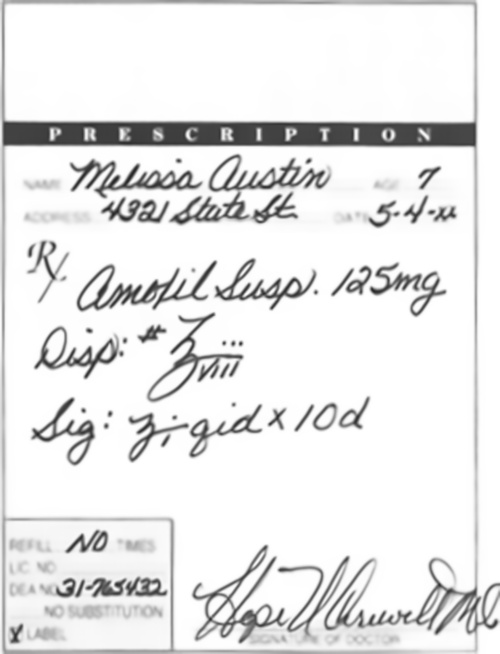 PRESCRIPTION
NAME Melissa Austin AGE 7
ADDRESS 4321 State St. DATE 5-4-xx
Rx Amoxil Susp. 125mg
Disp: # ℥ viii
Sig: ʒ i qid x 10d
REFILL NO TIMES
LIC. NO.
DEA NO. 31-765432
NO SUBSTITUTION
X LABEL
SIGNATURE OF DOCTOR